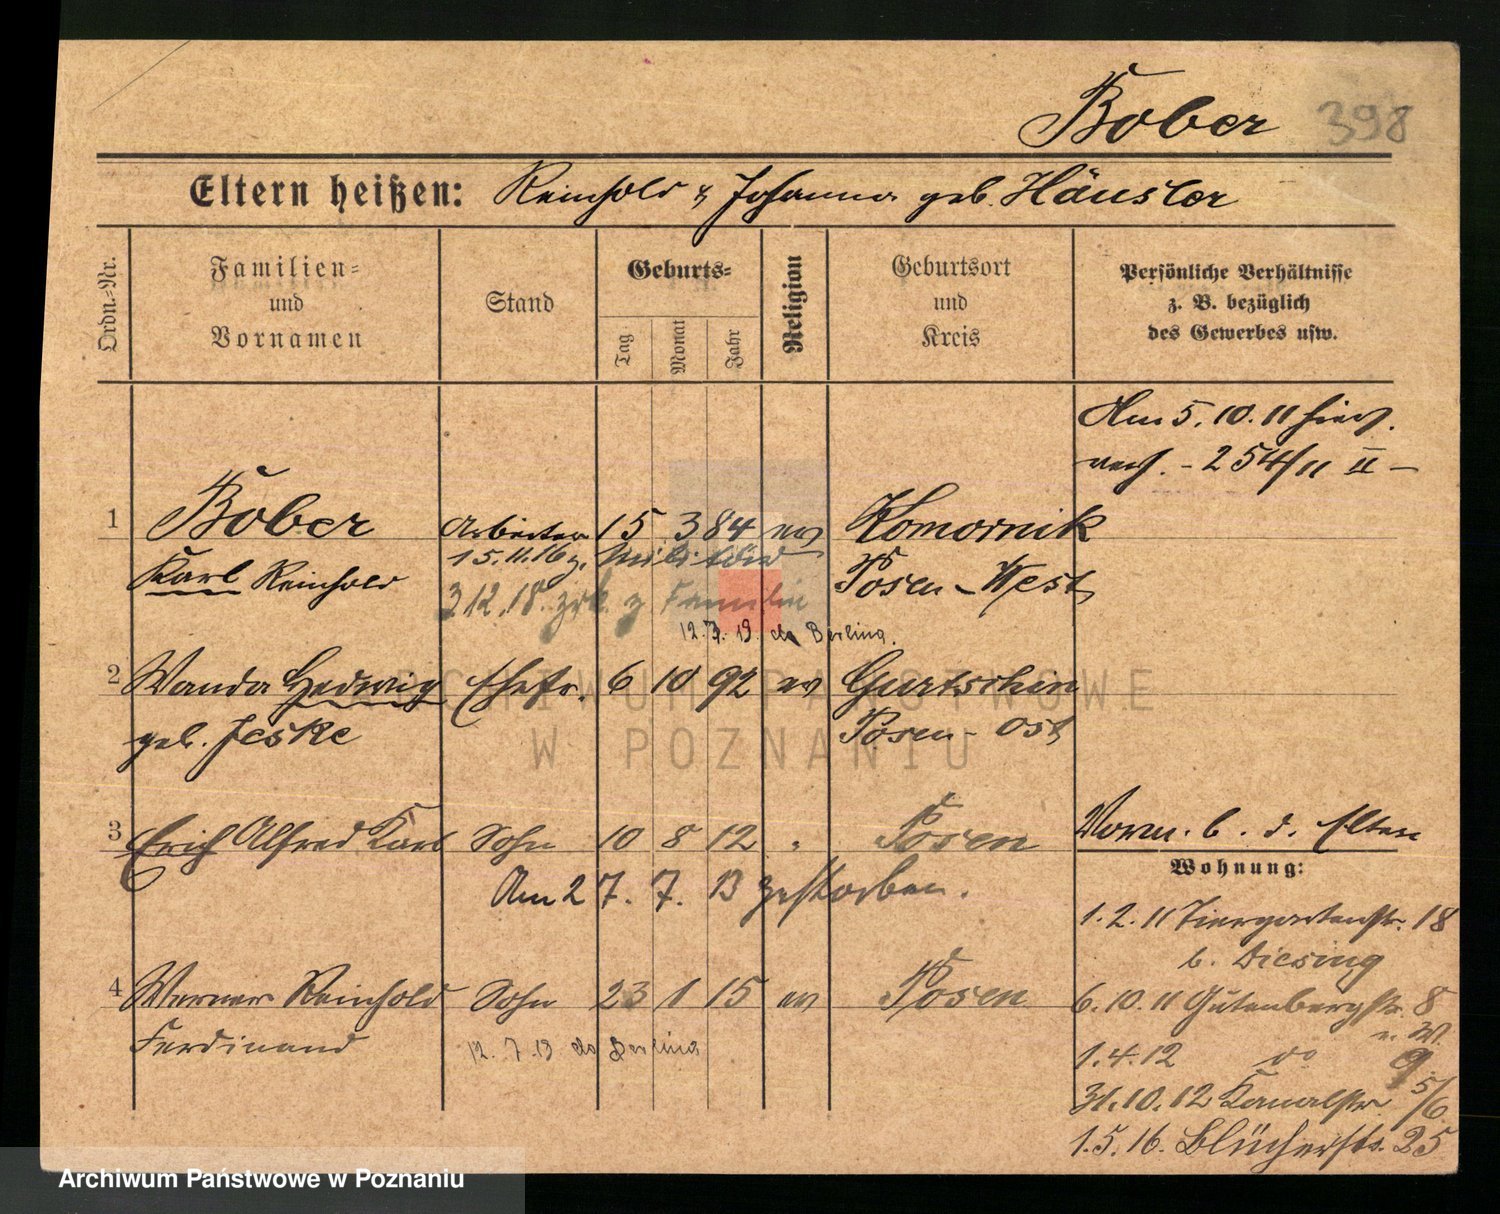 Bober 398
Eltern heißen: Reinhold & Johanna geb. Häusler
Ordn.-Nr.
Familien-
und
Vornamen
Stand
Geburts-
Tag
Monat
Jahr
Religion
Geburtsort
und
Kreis
Persönliche Verhältnisse
z. B. bezüglich
des Gewerbes usw.
Am 5. 10. 11 hier.
verh. - 254/11 II -
1 Bober Arbeiter 15 3 84 ev Komornik
15.11.16 z. Militär
Karl Reinhold Posen-West
3 12. 18. zrk. z Familie
12. 7. 19. do Berlina.
2 Wanda Hedwig Ehefr. 6 10 92 ev Gurtschin
geb. Jeske Posen-Ost
3 Erich Alfred Karl Sohn 10 8 12 " Posen
Am 27. 7. 13 gestorben.
4 Werner Reinhold Sohn 23 1 15 ev Posen
Ferdinand
12. 7. 19 do Berlina
Vorm. b. d. Eltern
Wohnung:
1. 2. 11 Tiergartenstr. 18
b. Diesing
6. 10. 11 Gutenbergstr. 8
e. W.
1. 4. 12 do 9.
31. 10. 12 Kanalstr. 5/6
1. 5. 16. Blücherstr. 25
ARCHIWUM PAŃSTWOWE
W POZNANIU
Archiwum Państwowe w Poznaniu